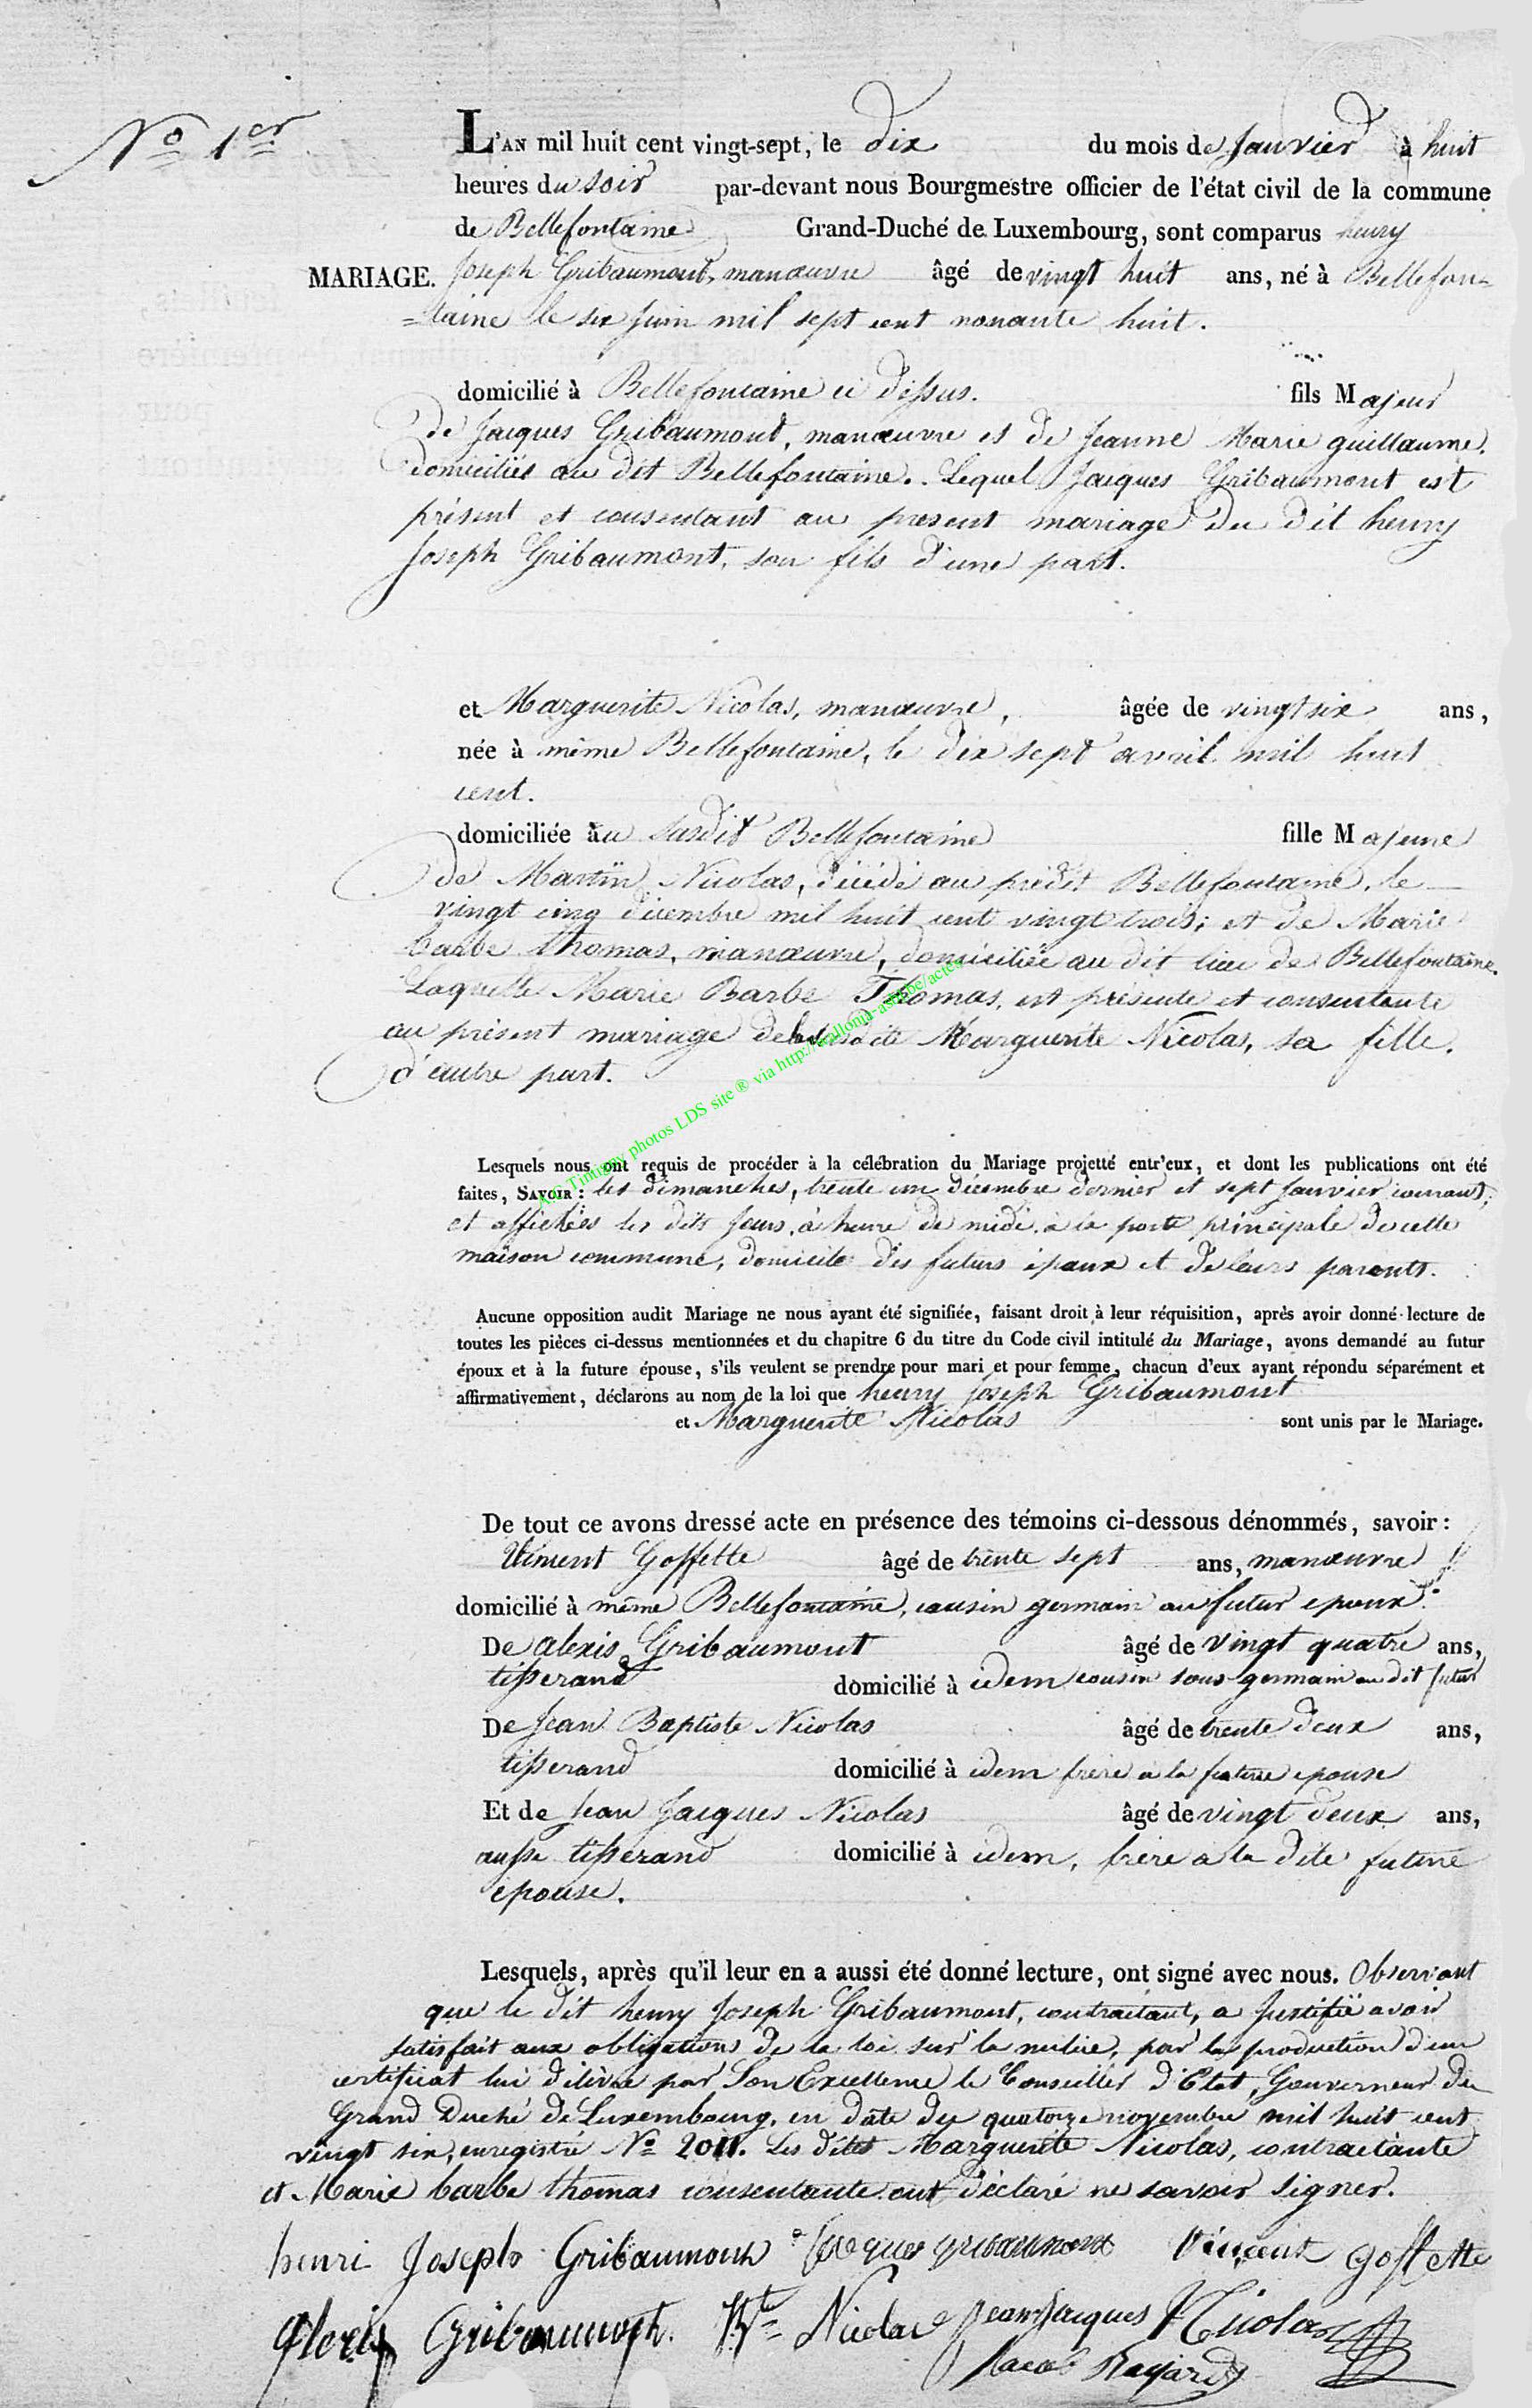 No 1er
L'AN mil huit cent vingt-sept, le dix du mois de Janvier à huit
heures du soir par-devant nous Bourgmestre officier de l'état civil de la commune
de Bellefontaine Grand-Duché de Luxembourg, sont comparus henry
MARIAGE. Joseph Gribaumont, manœuvre âgé de vingt huit ans, né à Bellefon=
=taine le six Juin mil sept cent nonante huit.
domicilié à Bellefontaine ci dessus. fils Majeur
de Jacques Gribaumont, manœuvre et de Jeanne Marie guillaume,
domiciliés au dit Bellefontaine. Lequel Jacques Gribaumont est
présent et consentant au present mariage du dit henry
Joseph Gribaumont, son fils d'une part.
et Marguerite Nicolas, manœuvre, âgée de vingt six ans,
née à même Bellefontaine, le dix sept avril mil huit
cent.
domiciliée au susdit Bellefontaine fille Majeure
de Martin Nicolas, décédé au prédit Bellefontaine, le
vingt cinq décembre mil huit cent vingt trois; et de Marie
barbe thomas, manœuvre, domiciliée au dit lieu de Bellefontaine.
Laquelle Marie Barbe Thomas, est présente et consentante
au présent mariage de la susdite Marguerite Nicolas, sa fille.
d'autre part.
A.C Tintigny photos LDS site ® via http://wallonia-asbl.be/actes
Lesquels nous ont requis de procéder à la célébration du Mariage projetté entr'eux, et dont les publications ont été
faites, SAVOIR : les dimanches, trente un décembre dernier et sept Janvier courant;
et affichées les dits Jours, à heure de midi, à la porte principale de cette
maison commune, domicile des futurs époux et de leurs parents.
Aucune opposition audit Mariage ne nous ayant été signifiée, faisant droit à leur réquisition, après avoir donné lecture de
toutes les pièces ci-dessus mentionnées et du chapitre 6 du titre du Code civil intitulé du Mariage, avons demandé au futur
époux et à la future épouse, s'ils veulent se prendre pour mari et pour femme, chacun d'eux ayant répondu séparément et
affirmativement, déclarons au nom de la loi que henry Joseph Gribaumont
et Marguerite Nicolas sont unis par le Mariage.
De tout ce avons dressé acte en présence des témoins ci-dessous dénommés, savoir :
Vincent Goffette âgé de trente sept ans, manœuvre
domicilié à même Bellefontaine, cousin germain au futur epoux.
De alexis Gribaumont âgé de vingt quatre ans,
tisserand domicilié à idem cousin sous germain au dit futur
De Jean Baptiste Nicolas âgé de trente deux ans,
tisserand domicilié à idem frère à la future epouse
Et de Jean Jacques Nicolas âgé de vingt deux ans,
aussi tisserand domicilié à idem, frère à la dite future
épouse.
Lesquels, après qu'il leur en a aussi été donné lecture, ont signé avec nous. Observant
que le dit henry Joseph Gribaumont, contractant, a Justifié avoir
satisfait aux obligations de la loi sur la milice, par la production d'un
certificat lui délivré par Son Excellence le Conseiller d'Etat, Gouverneur du
Grand Duché de Luxembourg, en date du quatorze novembre mil huit cent
vingt six, enregistré No 2011. Les dites Marguerite Nicolas, contractante
et Marie barbe thomas consentante ont déclaré ne savoir signer.
henri Joseph Gribaumont Jacques gribaumont Vincent goffette
Alexis Gribaumont. Bte Nicolas Jean Jacques Nicolas
Jacob